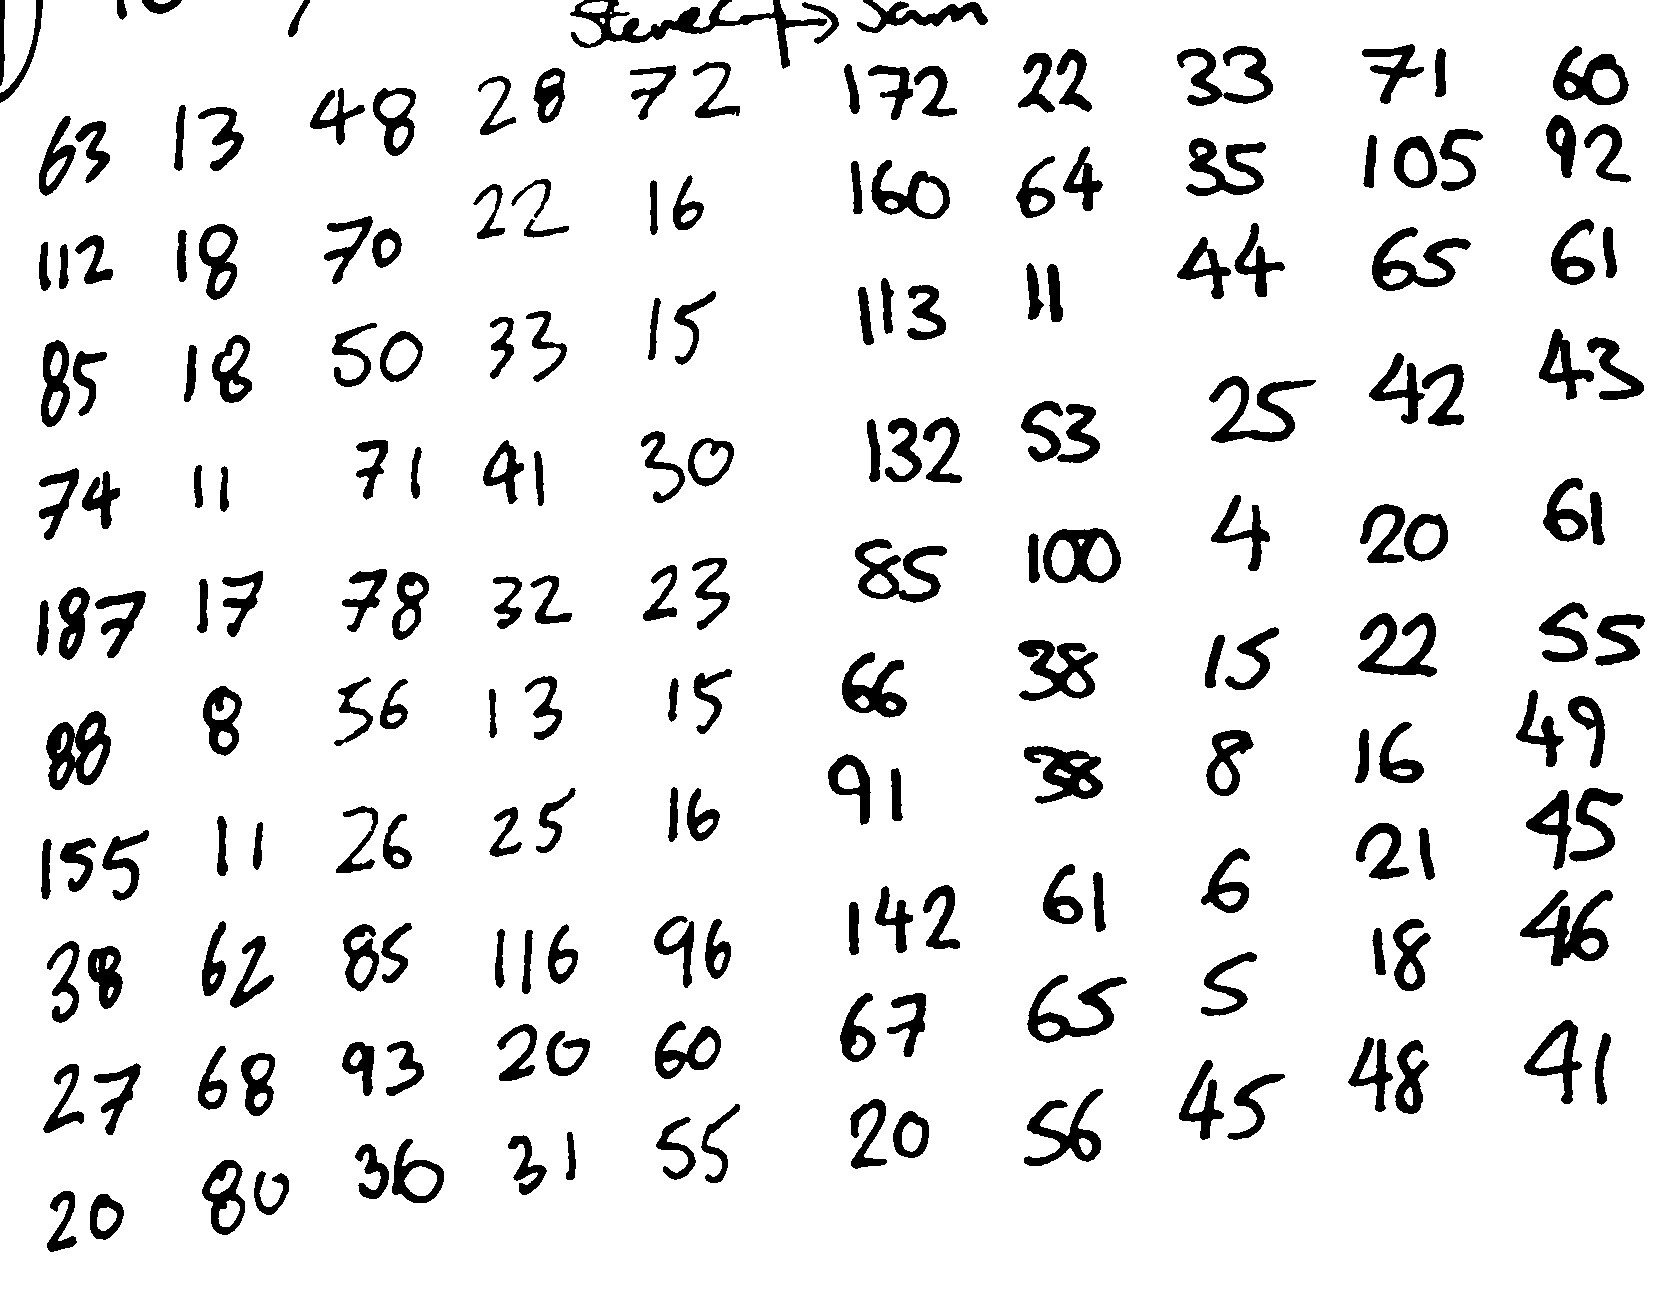 Steve ← → Sam
63 13 48 28 72 172 22 33 71 60
112 18 70 22 16 160 64 35 105 92
85 18 50 33 15 113 11 44 65 61
74 11 71 41 30 132 53 25 42 43
187 17 78 32 23 85 100 4 20 61
88 8 56 13 15 66 38 15 22 55
155 11 26 25 16 91 38 8 16 49
38 62 85 116 96 142 61 6 21 45
27 68 93 20 60 67 65 5 18 46
20 80 36 31 55 20 56 45 48 41